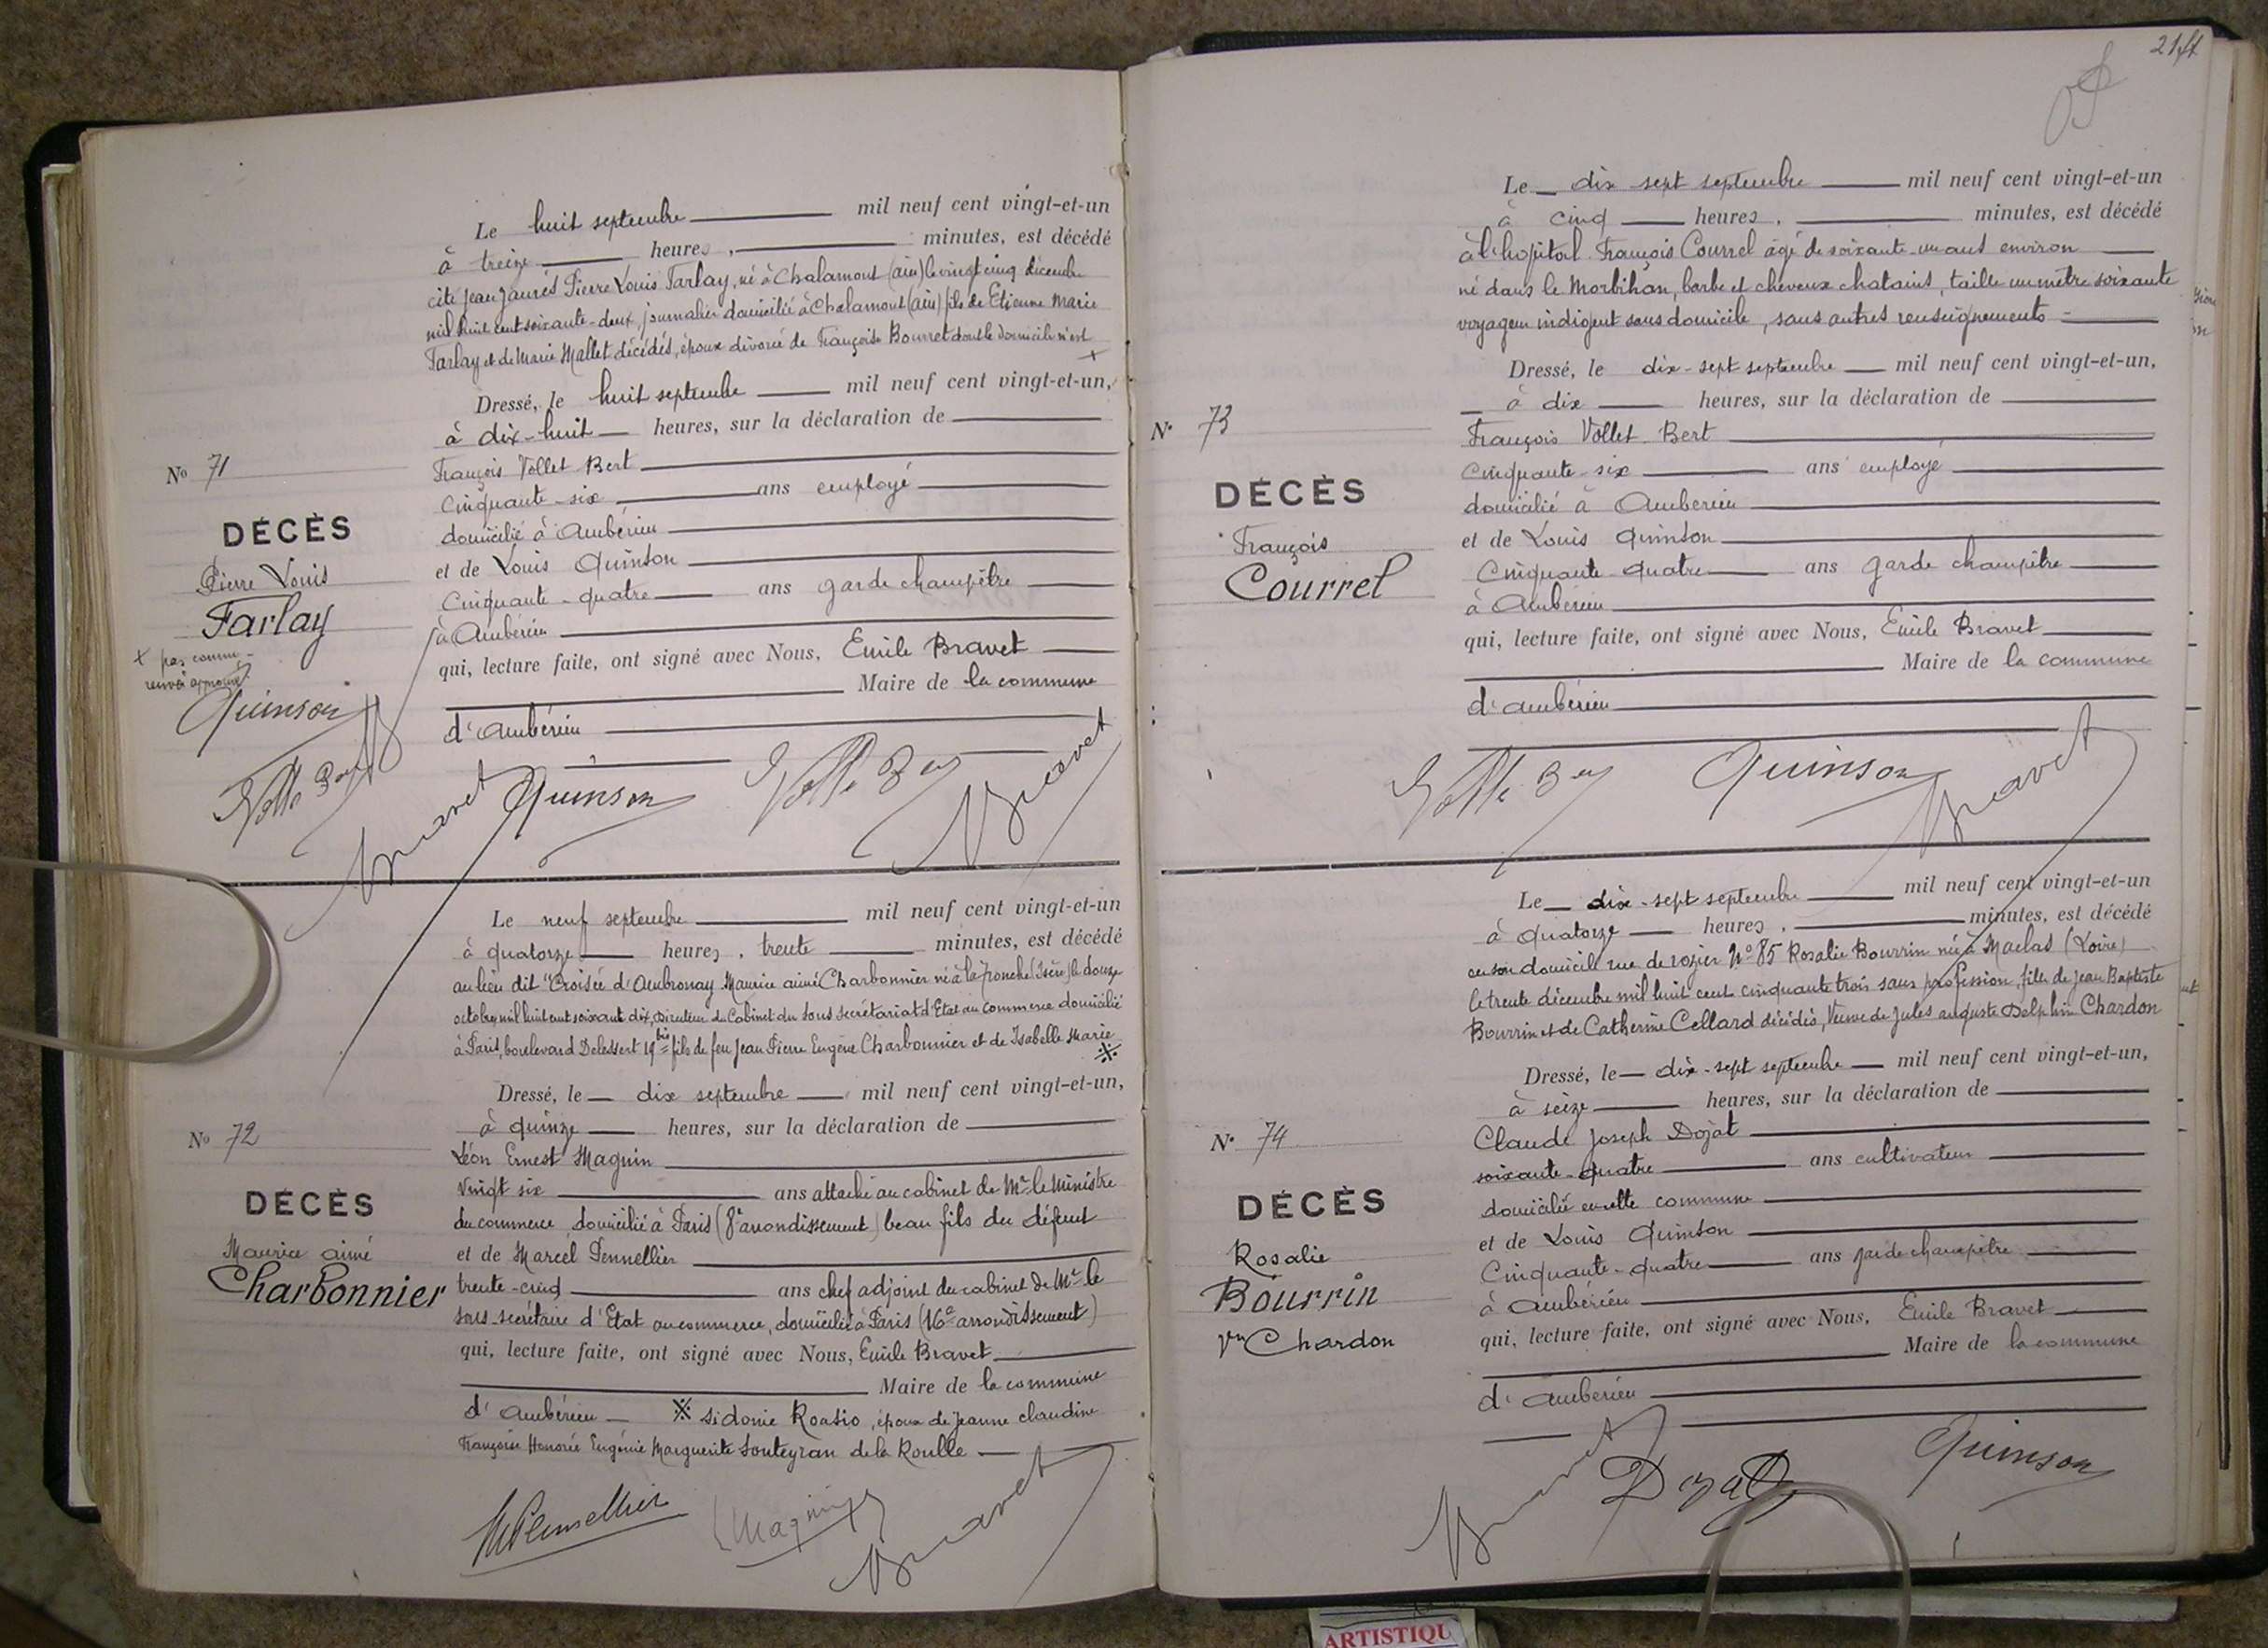 Le huit septembre mil neuf cent vingt-et-un
à treize heures, minutes, est décédé
cité jean jaurés Pierre Louis Farlay, né à Chalamont (ain) le vingt cinq décembre
mil huit cent soixante-deux, journalier domicilié à Chalamont (ain) fils de Etienne Marie
Farlay et de Marie Mallet décédés, époux divorcé de Françoise Bourret dont le domicile n'est
+
Dressé, le huit septembre mil neuf cent vingt-et-un,
à dix-huit heures, sur la déclaration de
François Vollet Bert
cinquante-six ans employé
domicilié à Ambérieu
et de Louis Quinson
cinquante-quatre ans garde champêtre
à Ambérieu
qui, lecture faite, ont signé avec Nous, Emile Bravet
Maire de la commune
d'Ambérieu
No 71
DÉCÈS
Pierre Louis
Farlay
+ pas connu -
renvoi approuvé
Quinson
Bravet Quinson Bravet
Le neuf septembre mil neuf cent vingt-et-un
à quatorze heures, trente minutes, est décédé
au lieu dit "Croisée d'Ambronay Maurice aimé Charbonnier né à la Tronche (Isère) le douze
octobre mil huit cent soixante dix, Directeur du Cabinet du sous secrétariat d'Etat au commerce domicilié
à Paris, boulevard Delessert 19 bis fils de feu Jean Pierre Eugène Charbonnier et de Isabelle Marie
※
Dressé, le dix septembre mil neuf cent vingt-et-un,
à quinze heures, sur la déclaration de
Léon Ernest Magnin
vingt six ans attaché au cabinet de Mr le Ministre
du commerce domicilié à Paris (8e arrondissement) beau fils du défunt
et de Marcel Pennellier
trente-cinq ans chef adjoint du cabinet de Mr le
sous-secrétaire d'Etat au commerce, domicilié à Paris (16e arrondissement)
qui, lecture faite, ont signé avec Nous, Emile Bravet
Maire de la commune
d'Ambérieu ※ Sidonie Roasio, époux de jeanne claudine
Françoise Honorée Eugénie Marguerite Souteyran de la Roulle
No 72
DÉCÈS
Maurice aimé
Charbonnier
MPennellier Magnin Bravet
21
Le dix sept septembre mil neuf cent vingt-et-un
à cinq heures, minutes, est décédé
à l'hopital François Courrel âgé de soixante-un ans environ
né dans le Morbihan, barbe et cheveux chatains, taille un mètre soixante
voyageur indigent sans domicile, sans autres renseignements
Dressé, le dix-sept septembre mil neuf cent vingt-et-un,
à dix heures, sur la déclaration de
François Vollet Bert
cinquante-six ans employé
domicilié à Ambérieu
et de Louis Quinson
cinquante-quatre ans garde champêtre
à Ambérieu
qui, lecture faite, ont signé avec Nous, Emile Bravet
Maire de la commune
d'Ambérieu
N° 73
DÉCÈS
François
Courrel
Quinson Bravet
Le dix-sept septembre mil neuf cent vingt-et-un
à quatorze heures, minutes, est décédé
en son domicile rue de rozier No 85 Rosalie Bourrin née à Maclas (Loire)
le trente décembre mil huit cent cinquante trois sans profession, fille de jean Baptiste
Bourrin et de Catherine Cellard décédés, Veuve de jules auguste Delphin Chardon
Dressé, le dix-sept septembre mil neuf cent vingt-et-un,
à seize heures, sur la déclaration de
Claude joseph Dojat
soixante-quatre ans cultivateur
domicilié en cette commune
et de Louis Quinson
cinquante-quatre ans garde champêtre
à Ambérieu
qui, lecture faite, ont signé avec Nous, Emile Bravet
Maire de la commune
d'Ambérieu
N° 74
DÉCÈS
Rosalie
Bourrin
Vve Chardon
Bravet Dojat Quinson
ARTISTIQU